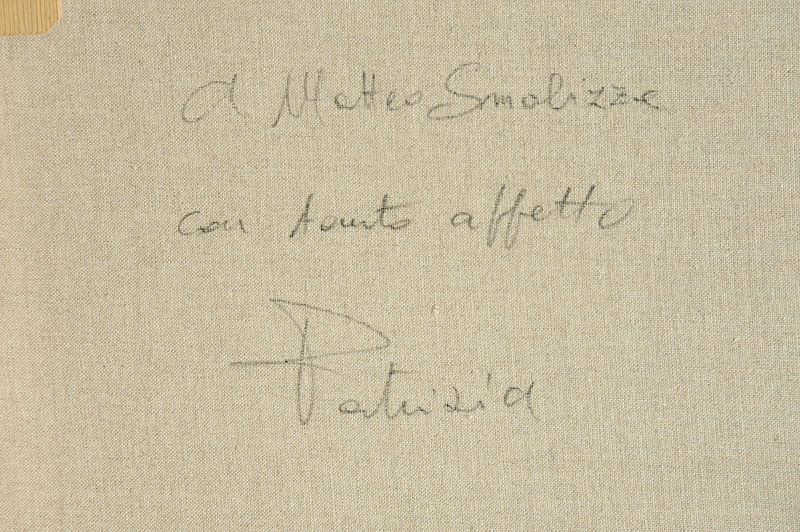 a Matteo Smolizza
con tanto affetto
Patrizia